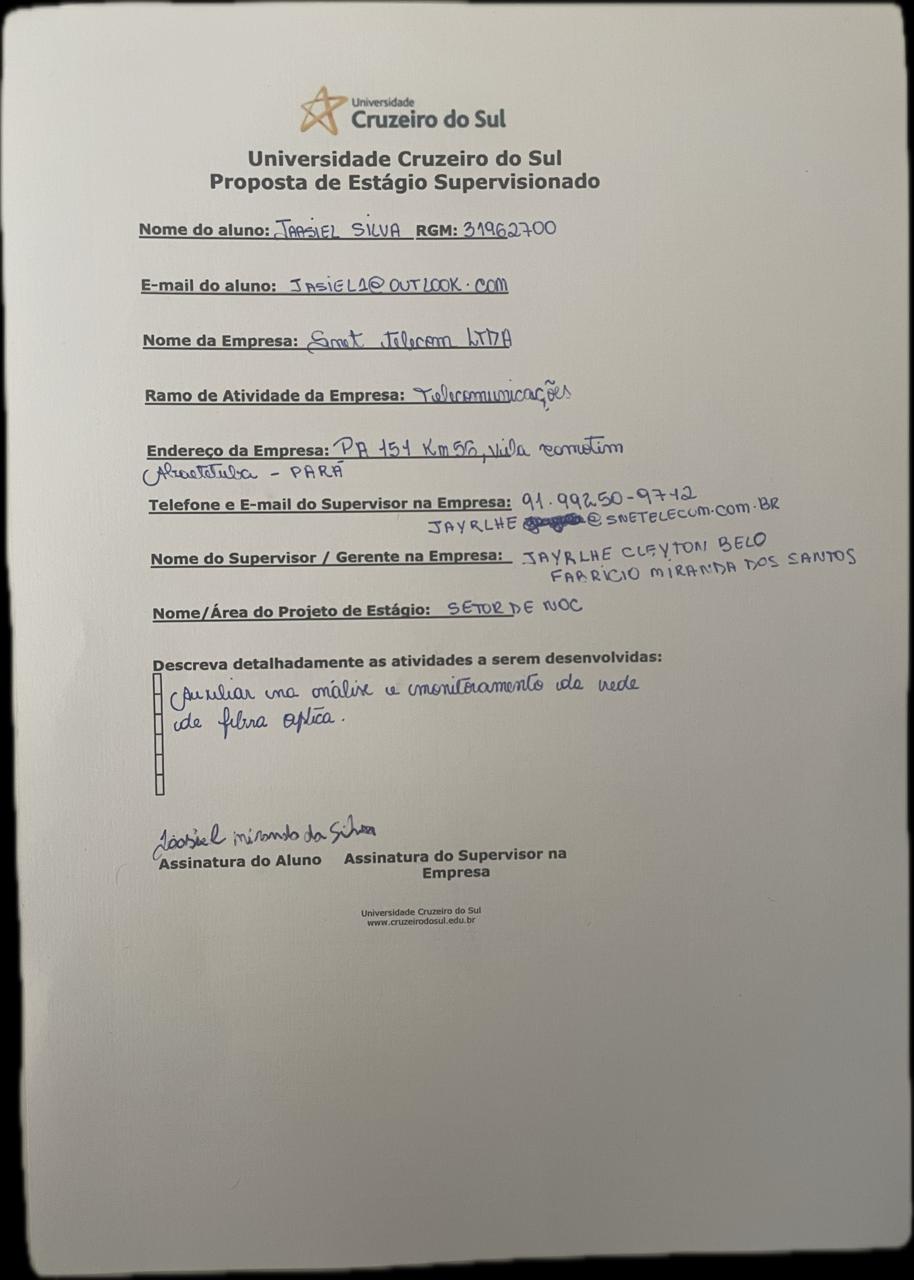 Universidade
Cruzeiro do Sul
Universidade Cruzeiro do Sul
Proposta de Estágio Supervisionado
Nome do aluno: JAASIEL SILVA RGM: 31962700
E-mail do aluno: JASIEL1@OUTLOOK.COM
Nome da Empresa: Snet Telecom LTDA
Ramo de Atividade da Empresa: Telecomunicações
Endereço da Empresa: PA 151 Km 56, Vila
Abaetetuba - PARÁ
Telefone e E-mail do Supervisor na Empresa: 91.99250-9712
JAYRLHE @SNETELECOM.COM.BR
Nome do Supervisor / Gerente na Empresa: JAYRLHE CLEYTON BELO
FABRÍCIO MIRANDA DOS SANTOS
Nome/Área do Projeto de Estágio: SETOR DE NOC
Descreva detalhadamente as atividades a serem desenvolvidas:
Auxiliar na análise e monitoramento da rede
de fibra optica.
Jaasiel miranda da Silva
Assinatura do Aluno Assinatura do Supervisor na
Empresa
Universidade Cruzeiro do Sul
www.cruzeirodosul.edu.br